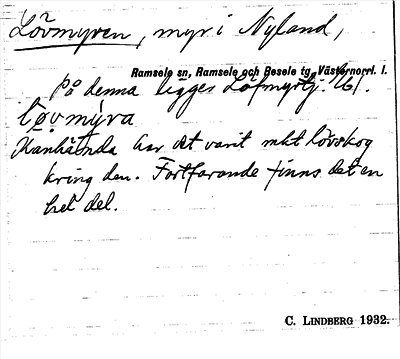 Lövmyren, myr i Nyland,
Ramsele sn, Ramsele och Resele tg, Västernorrl. l.
På denna ligger Löfmyrtj.
lövmýra
Kanhända har det varit mkt lövskog
kring den. Fortfarande finns det en
hel del.
C. LINDBERG 1932.